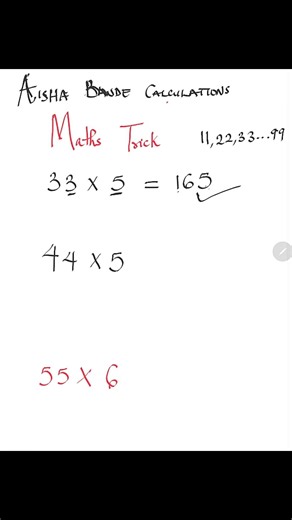 AISHA BANDE CALCULATIONS
Maths Trick 11,22,33...99
33 × 5 = 165
44 × 5
55 × 6